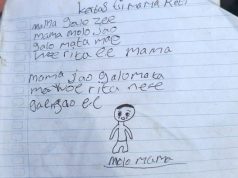 kertas si mama keti
mama galo zee
mama molo jao
galo mata mae
hee rita ee mama
mama jao galo mata
mawoe rita nese
gaezao ee
molo mama